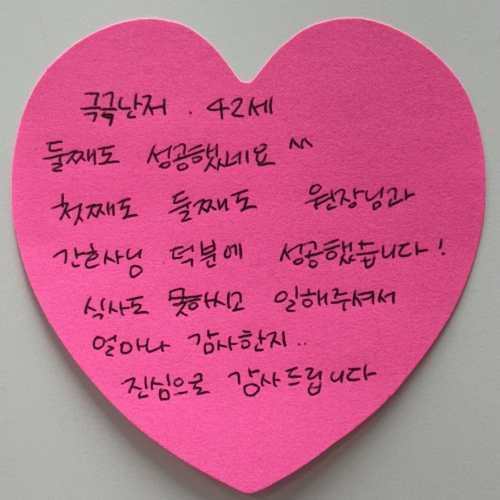 극극난저 . 42세
둘째도 성공했네요 ^^
첫째도 둘째도 원장님과
간호사님 덕분에 성공했습니다!
식사도 못하시고 일해주셔서
얼마나 감사한지..
진심으로 감사드립니다